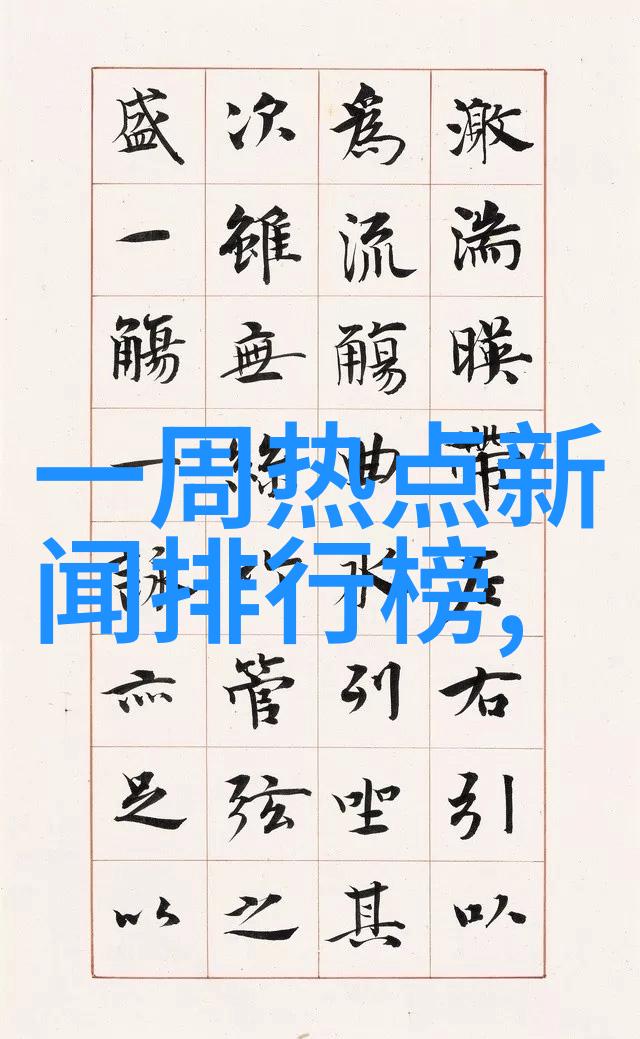 激湍暎帶左右引以
為流觴曲水列坐其
次雖無絲竹管弦之
盛一觴一詠亦足以
一周热点新
闻排行榜,